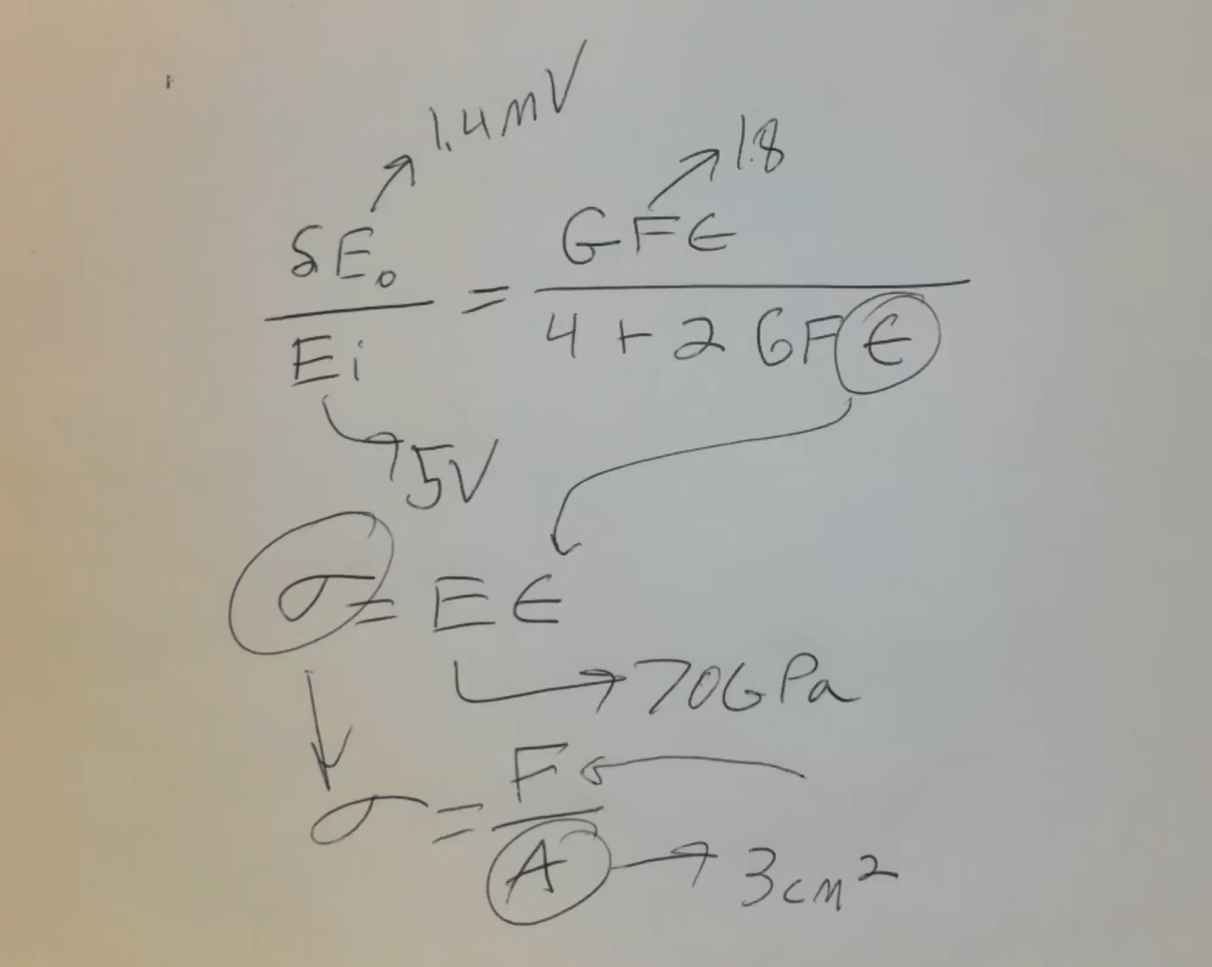 1.4mV
1.8
δE₀ / Ei = GFϵ / 4 + 2 GFϵ
5V
σ = Eϵ
70GPa
σ = F / A
3cm²